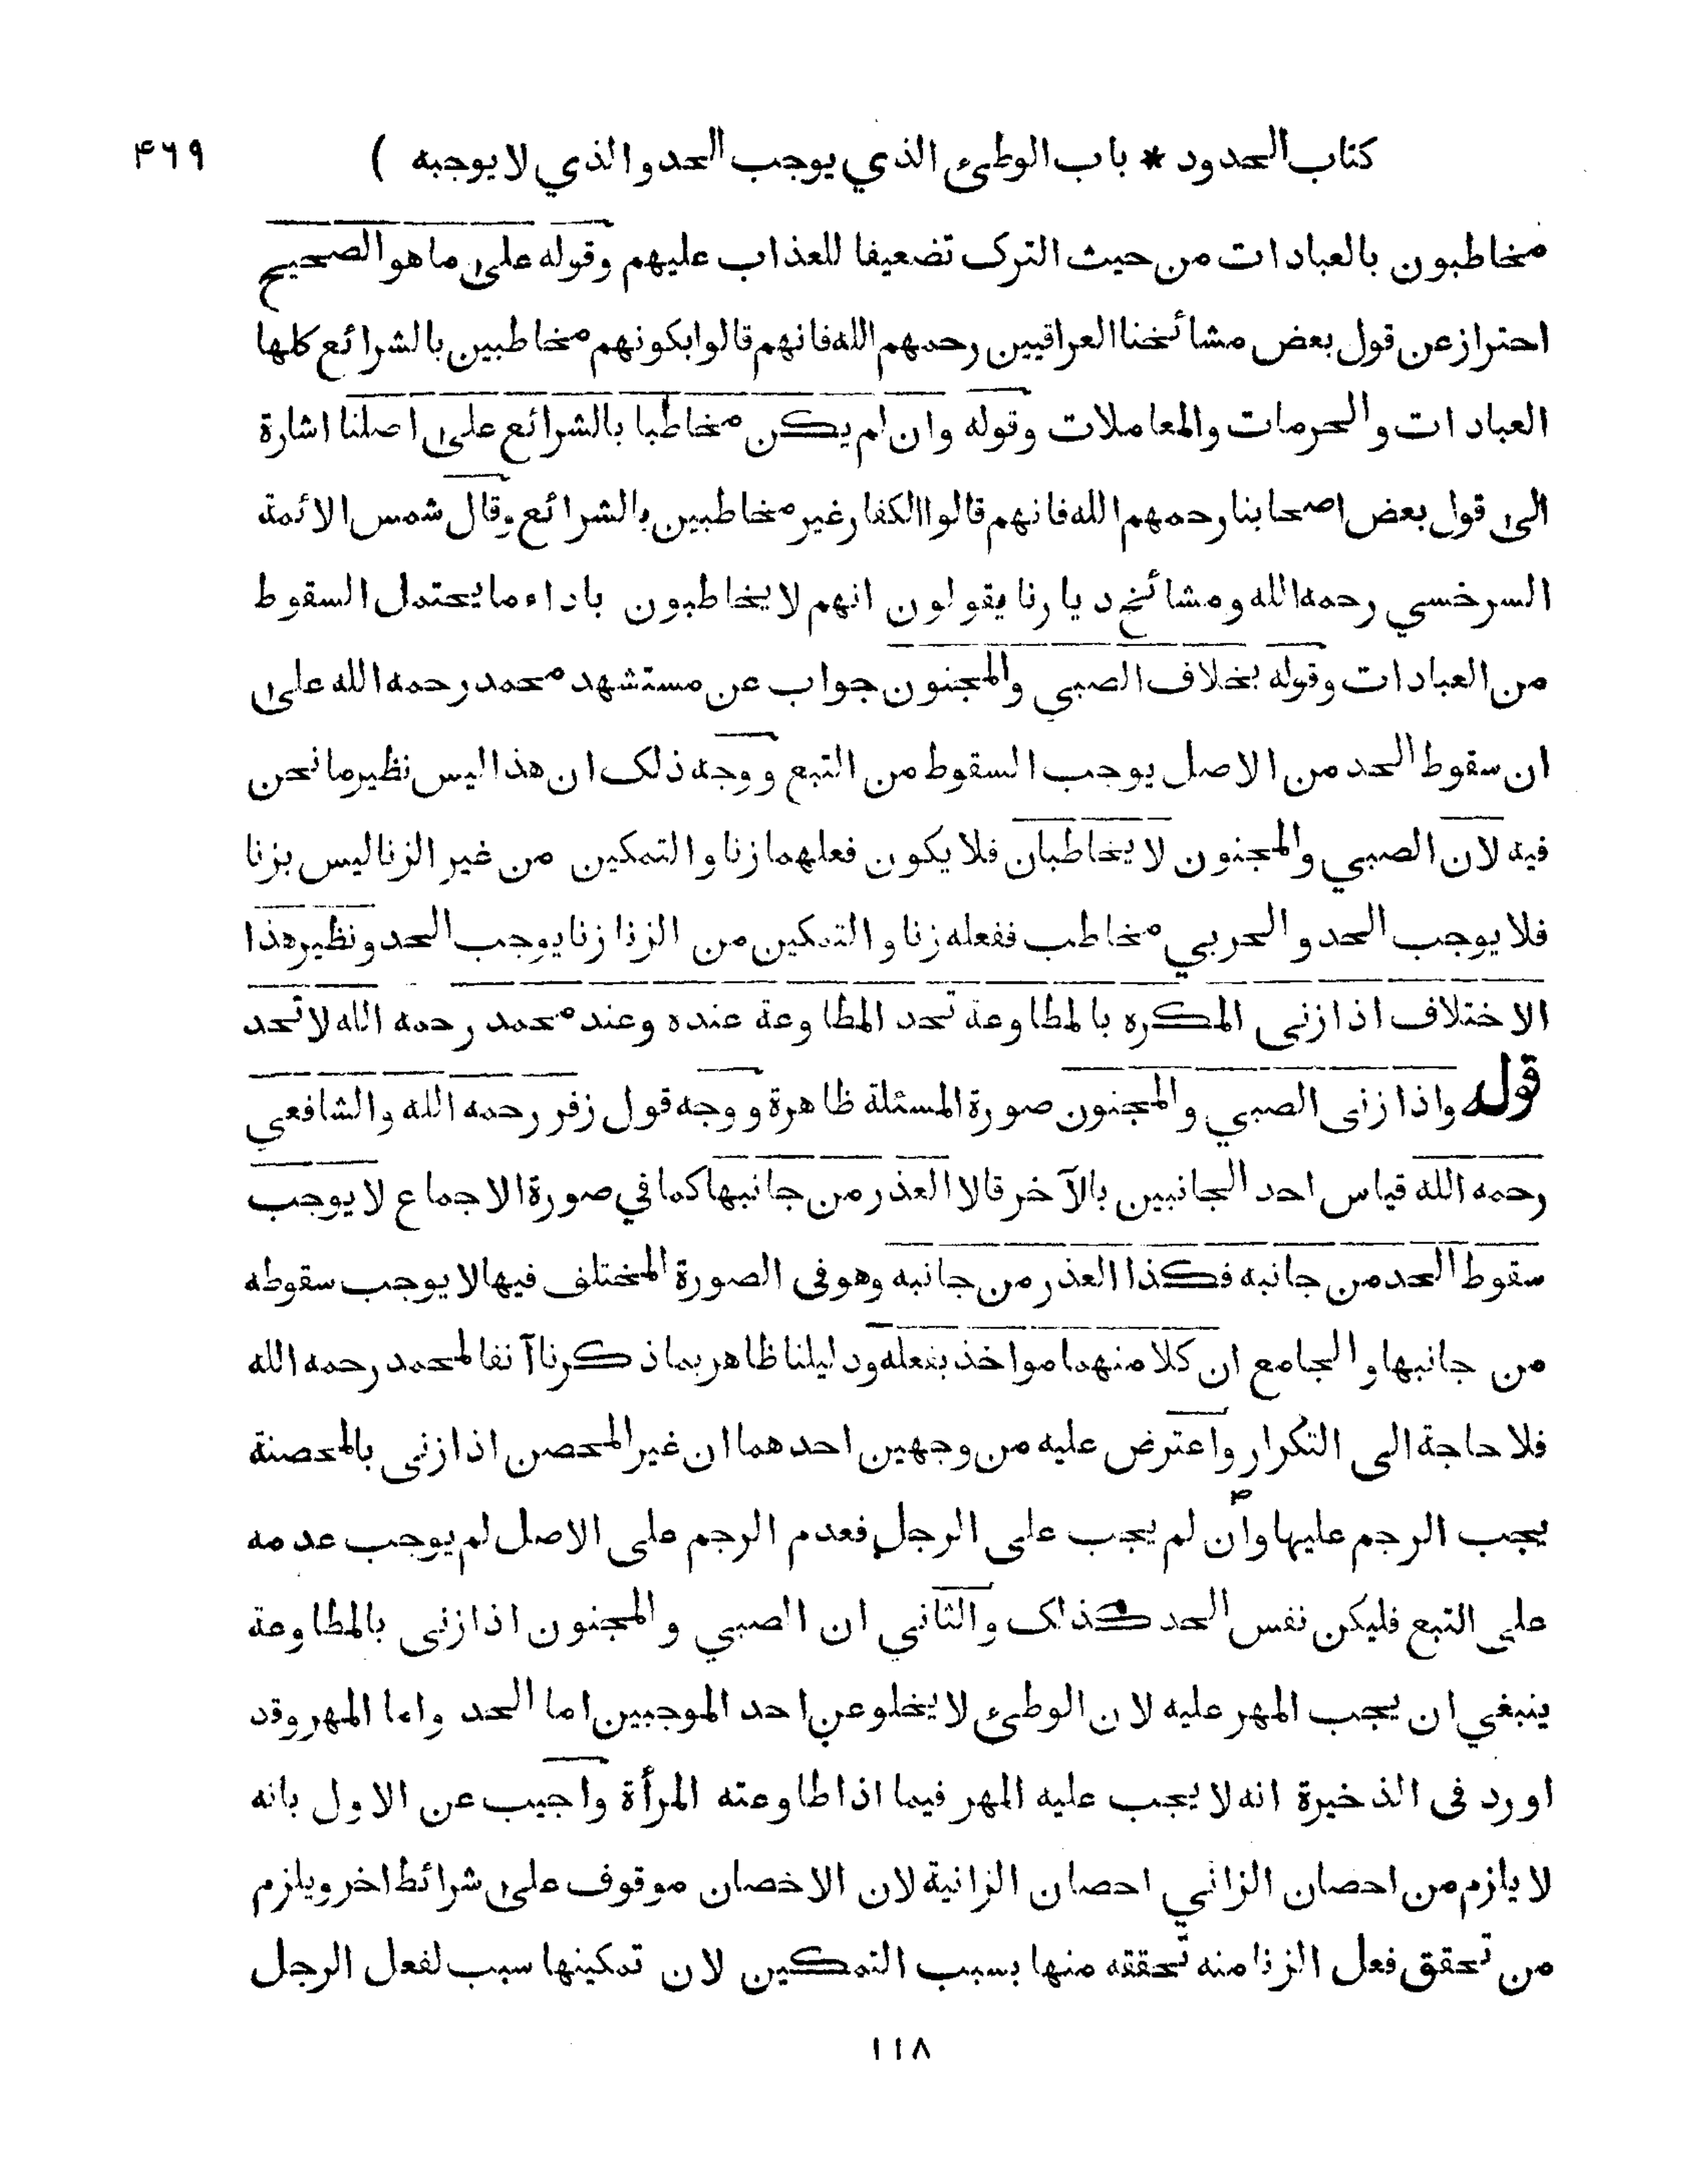 كتاب الحدود * باب الوطىء الذي يوجب الحد والذي لا يوجبه ) ۴۶۹
مخاطبون بالعبادات من حيث الترك تضعيفا للعذاب عليهم وقوله على ما هو الصحيح
احتراز عن قول بعض مشائخنا العراقيين رحمهم الله فانهم قالوا بكونهم مخاطبين بالشرائع كلها
العبادات والحرمات والمعاملات وقوله وان لم يكن مخاطبا بالشرائع على اصلنا اشارة
الى قول بعض اصحابنا رحمهم الله فانهم قالوا الكفار غير مخاطبين بالشرائع وقال شمس الائمة
السرخسي رحمه الله ومشائخ ديارنا يقولون انهم لا يخاطبون باداء ما يحتمل السقوط
من العبادات وقوله بخلاف الصبي والمجنون جواب عن مستشهد محمد رحمه الله على
ان سقوط الحد من الاصل يوجب السقوط من التبع ووجه ذلك ان هذا ليس نظير ما نحن
فيه لان الصبي والمجنون لا يخاطبان فلا يكون فعلهما زنا والتمكين من غير الزنا ليس بزنا
فلا يوجب الحد والحربي مخاطب ففعله زنا والتمكين من الزنا زنا يوجب الحد ونظير هذا
الاختلاف اذا زنى المكره بالمطاوعة تحد المطاوعة عنده وعند محمد رحمه الله لا تحد
قوله واذا زنى الصبي والمجنون صورة المسئلة ظاهرة ووجه قول زفر رحمه الله والشافعي
رحمه الله قياس احد الجانبين بالآخر قالا العذر من جانبها كما في صورة الاجماع لا يوجب
سقوط الحد من جانبه فكذا العذر من جانبه وهو فى الصورة المختلف فيها لا يوجب سقوطه
من جانبها والجامع ان كلا منهما مواخذ بفعله ودليلنا ظاهر بما ذكرنا آنفا لمحمد رحمه الله
فلا حاجة الى التكرار واعترض عليه من وجهين احدهما ان غير المحصن اذا زنى بالمحصنة
يجب الرجم عليها وان لم يجب على الرجل فعدم الرجم على الاصل لم يوجب عدمه
على التبع فليكن نفس الحد كذلك والثاني ان الصبي والمجنون اذا زنى بالمطاوعة
ينبغي ان يجب المهر عليه لان الوطىء لا يخلو عن احد الموجبين اما الحد واما المهر وقد
اورد فى الذخيرة انه لا يجب عليه المهر فيما اذا طاوعته المرأة واجيب عن الاول بانه
لا يلزم من احصان الزاني احصان الزانية لان الاخصان موقوف على شرائط اخر ويلزم
من تحقق فعل الزنا منه تحققه منها بسبب التمكين لان تمكينها سبب لفعل الرجل
١١٨